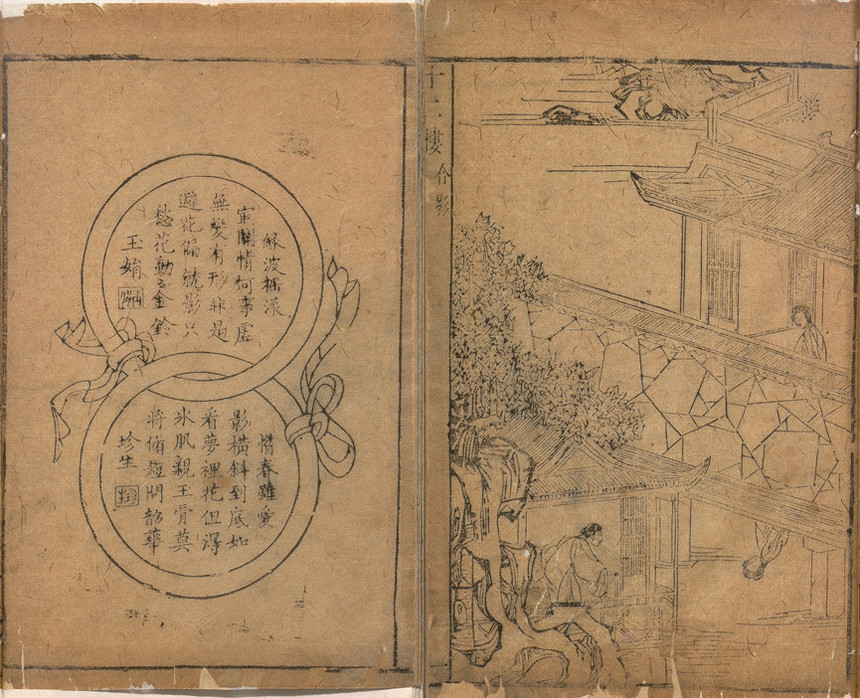 十二樓 合影
綠波搖漾
㝡關情何事虛
無變有形非是
避花偏就影只
愁花動〻金鈴
玉娟
惜春雖愛
影橫斜到底如
看夢裡花但得
氷肌親玉骨莫
將脩短問韶華
珍生